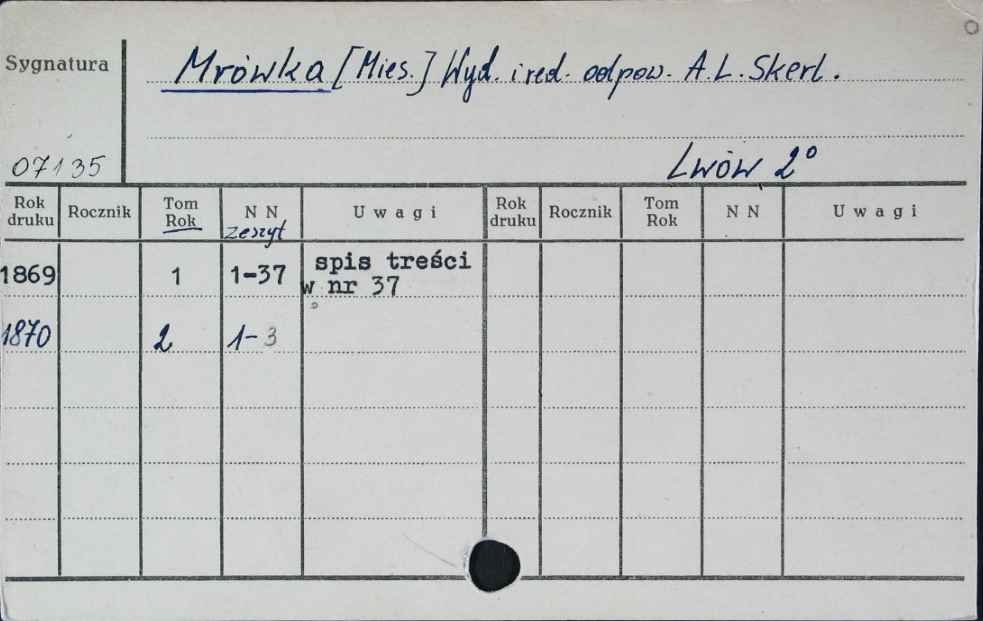 Sygnatura
Mrówka [Mies.] Wyd. i red. odpow. A.L. Skerl.
07135
Lwów 2°
Rok druku Rocznik Tom Rok N N zeszyt U w a g i Rok druku Rocznik Tom Rok N N U w a g i
1869 1 1-37 spis treści
w nr 37
1870 2 1-3